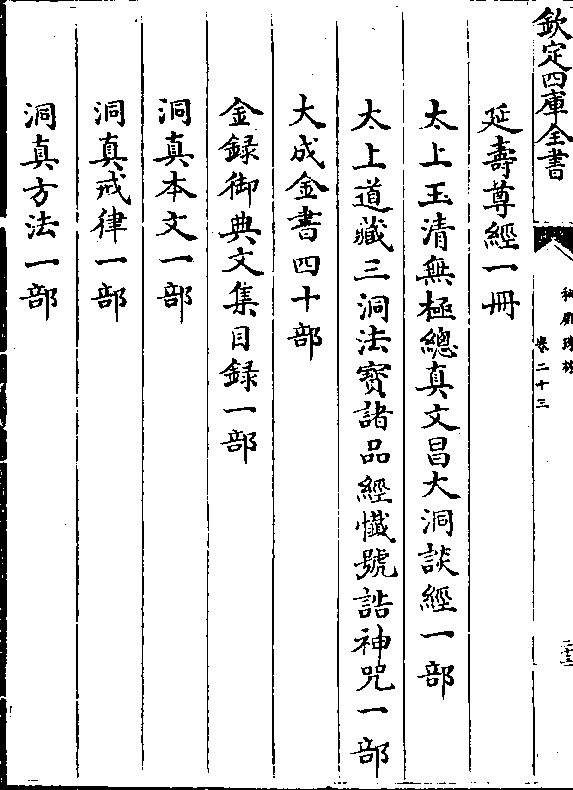 欽定四庫全書
卷二十三
延壽尊經一冊
太上玉清無極總真文昌大洞談經一部
太上道藏三洞法寳諸品經懺號誥神咒一部
大成金書四十部
金録御典文集目録一部
洞真本文一部
洞真戒律一部
洞真方法一部